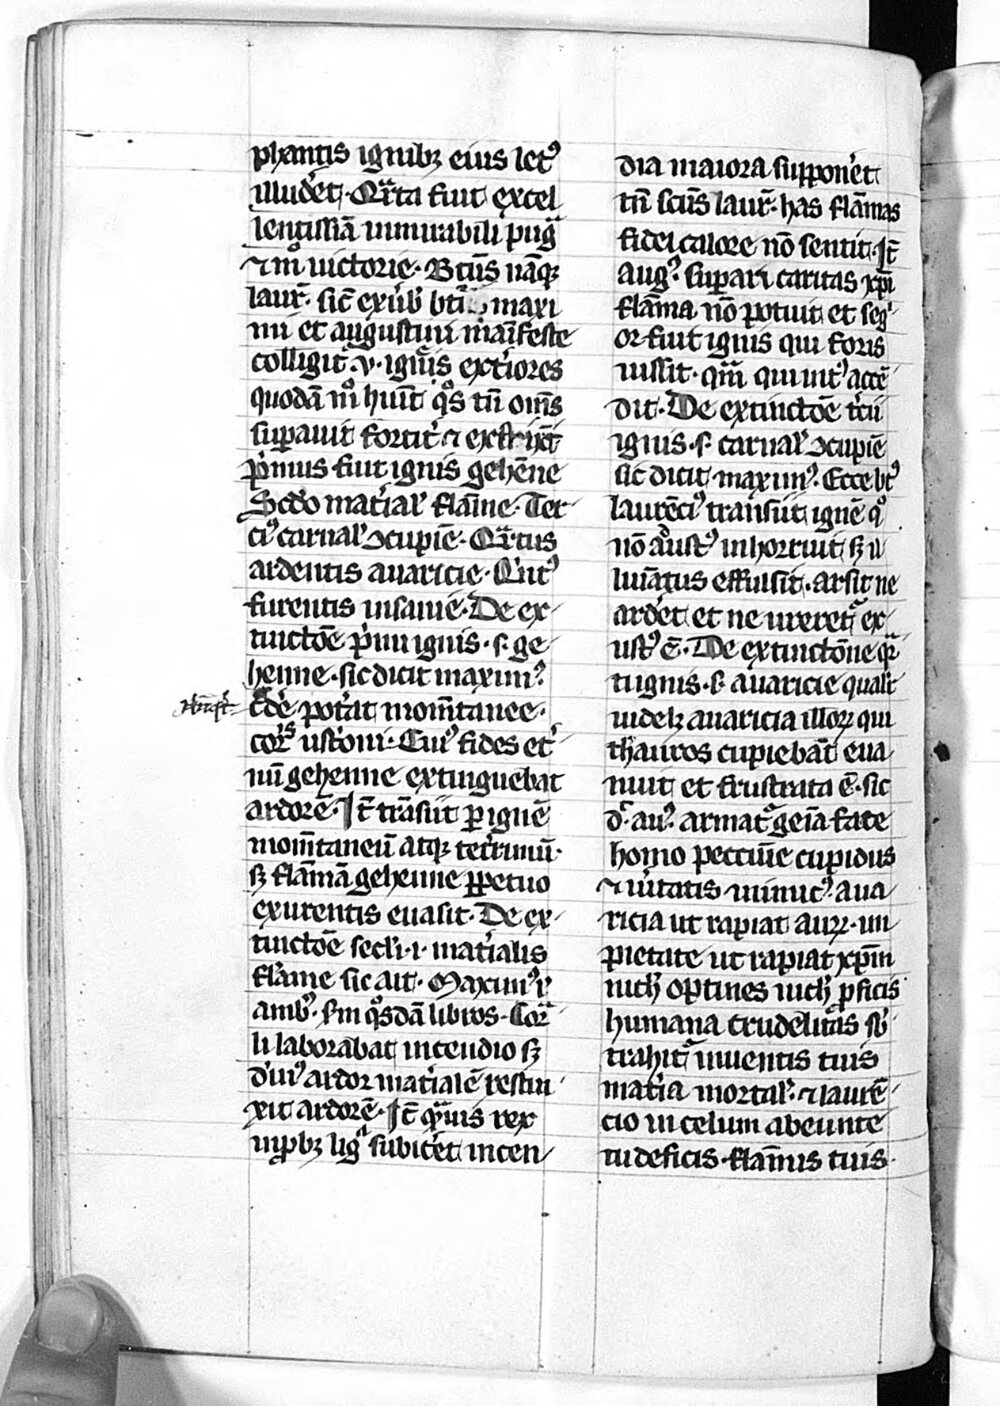 phantis ignibꝫ eius letꝰ
illudet. Qͣrta fuit excel
lentissiā inmirabili pugͣ
⁊ mͦ victorie. Btūs nāqꝫ
laur̄. sic̄ ex vb̓ bti maxi
mi et augustini maīfeste
colligitᷣ. v. igͥs ext̓iores
quodā mͦ huīt qͦs tn̄ om̄s
suꝑauit fortit̓ ⁊
pͥmus fuit ignis gehēne
Scdo mat̓ialꝭ flāme. Ter
ciꝰ carnalꝭ ↄcupie. Qͣrtus
ardentis auaricie. Qͥntꝰ
furentis insanie. De ex
tinctōe pͥmi ignis. s. ge
henne. sic dicit maximꝰ.
poterat mom̄tanee.
corꝑis ustōni. Cuiꝰ fides et̓
nū gehenne extinguebat
ardorē. Jt̄ trāsiit ꝑ ignē
mom̄taneū atqꝫ terrinū.
sꝫ flāmā gehenne ꝑpetuo
exurentis euasit. De ex
tinctōe secdi. i. mat̓ialis
flāme sic ait. Maximꝰ ł̓
ambꝰ. sm̄ qͦsdā libros. Corͣ
li laborabat incendio sꝫ
diuiꝰ ardor mat̓ialē restin
xit ardorē. Jt̄ qͣuis rex
inꝓbꝫ ligͣ subicet incen
dia maiora supponet
tn̄ scūs laur̄. has flāmas
fidei calore nō sentit. Jt̄
augꝰ. suꝑari caritas xp̄i
flāma nō potuit et segͥ
or fuit ignis qui foris
ussit. qͣm qui intꝰ accē
dit. De extinctōe t̓cii
ignis. s. carnalꝭ ↄcupie
sic dicit maximꝰ. Ecce btꝰ
laurēciꝰ transiit ignē qͦ
nō aduistꝰ inhorruit sꝫ il
luīatus effulsit. arsit ne
ardet et ne ureretᷣ ex
ustꝰ ē. De extinctōne qͣr
ti ignis. s. auaricie qualit̓
uidelꝫ auaricia illoꝝ qui
thauros cupiebāt eua
nuit et frustrata ē. sic
dꝭ auꝰ. armatᷣ geīa face
homo peccunie cupidus
⁊ uitatis inimicꝰ aua
ricia ut rapiat auꝝ. im
pietate ut rapiat xp̄m
nichͥ optines nichͥ ꝓficis
humana crudelitͣas sb̓
trahitᷣ inuentis tuis
mat̓ia mortalꝭ. ⁊ laurē
cio in celum abeunte
tu deficis. flāmis tuis.